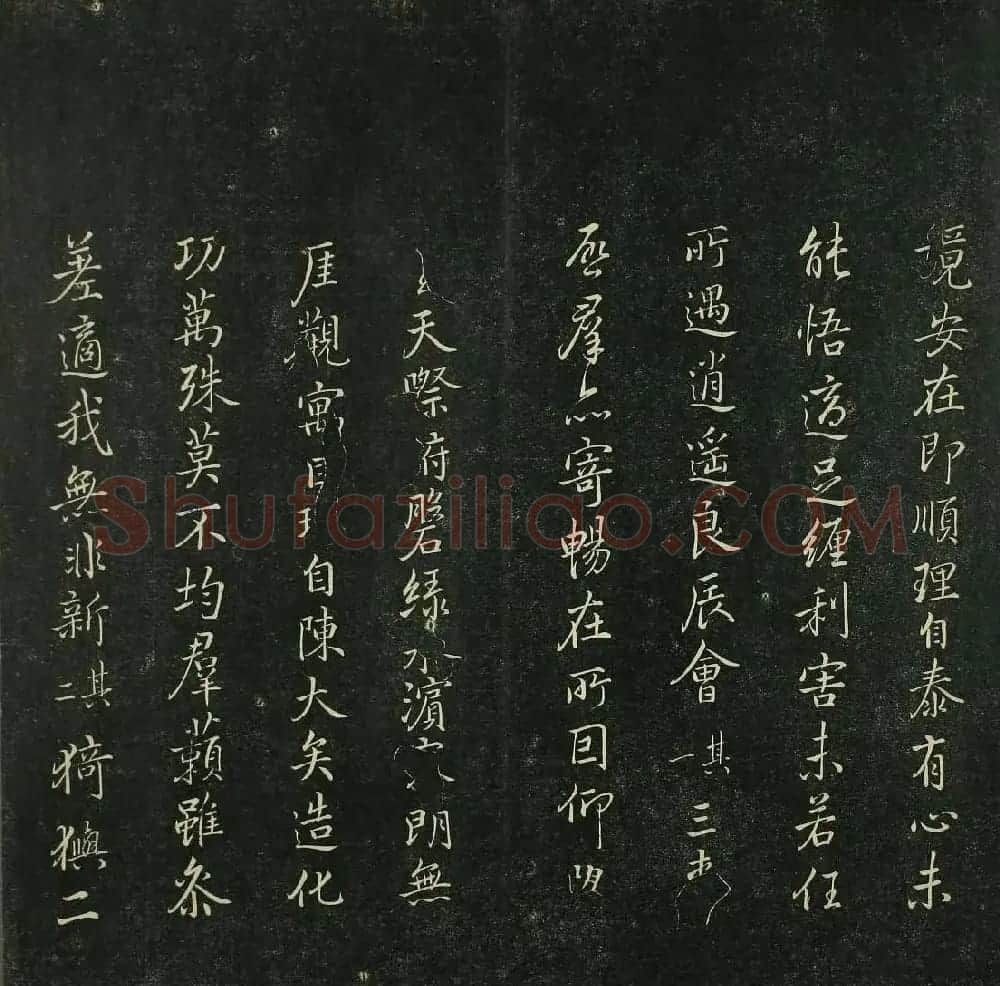 境安在即順理自泰有心未
能悟適足纏利害未若任
所遇逍遥良辰會其一三
羣寄暢在所因仰
天際俯磐緑水濱朗無
厓觀寓目自陳大矣造化
功萬殊莫不均羣籟雖參
差適我無非新其二猗㺞二
Shufaziliao.COM